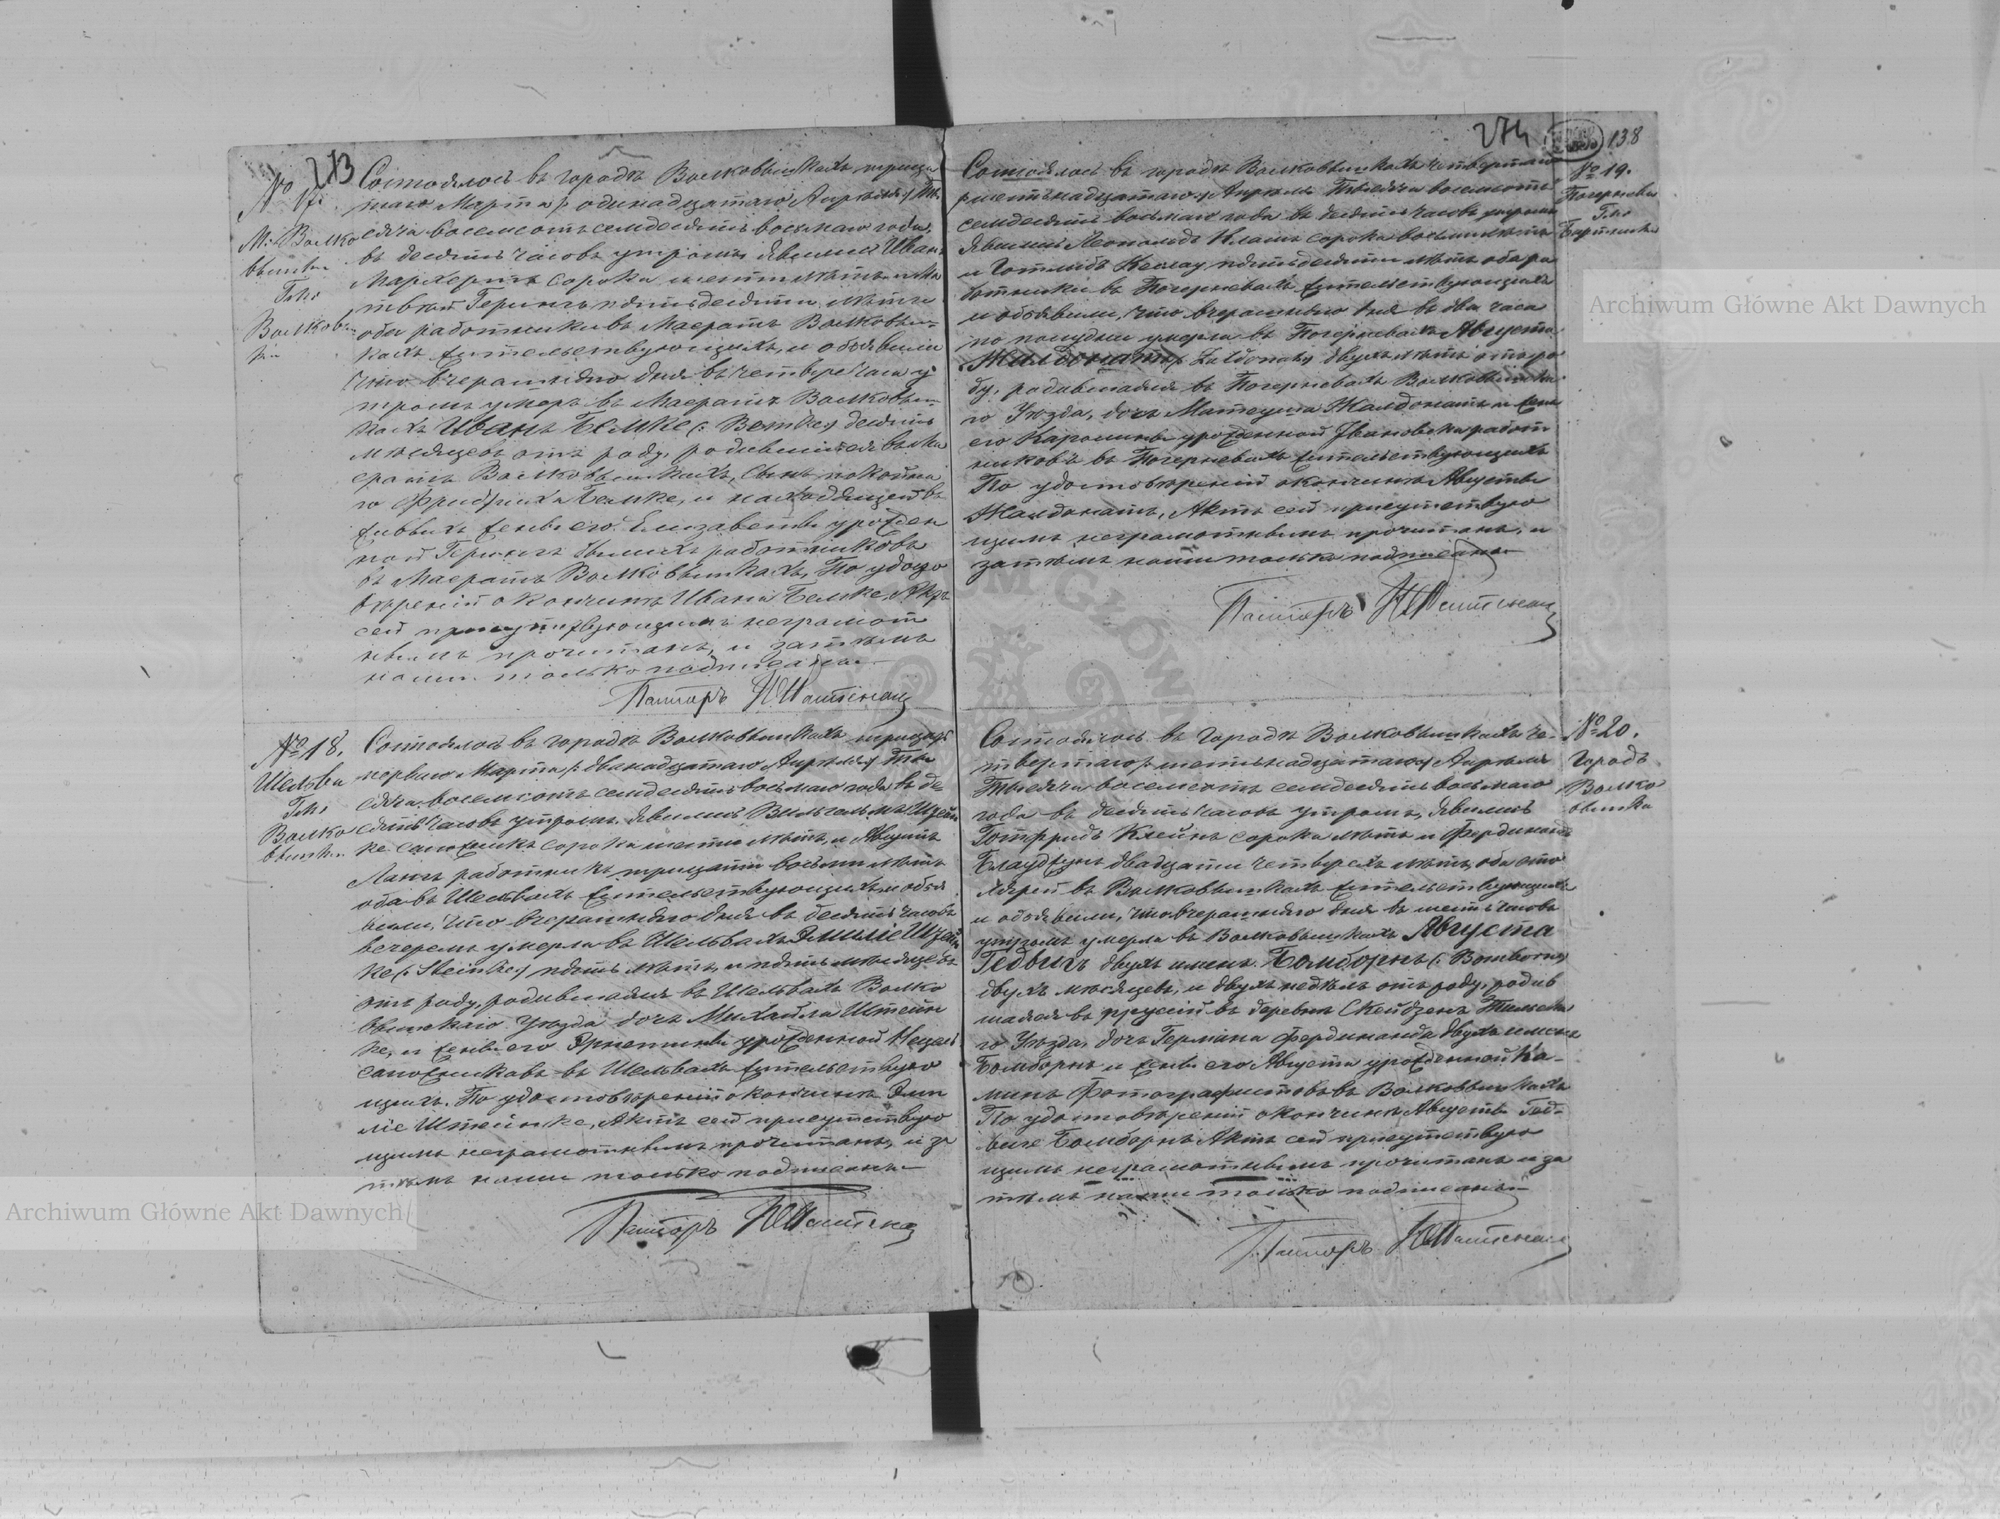 273
№ 17.
М. Волко
вышки
Гмн
Волковы
Состоялось въ городѣ Волковышкахъ тридца
таго Марта /: одинадцатаго Апрѣля :/ ты
сяча восемсотъ семдесятъ восьмаго года,
въ десять часовъ утромъ, явились Иванъ
Маркертъ сорока шести лѣтъ и Ма
твѣй Герингъ пятьдесяти лѣтъ
оба работники въ Маератѣ Волковыш-
кахъ жительствующихъ, и объявили
что вчерашняго дня въ четыре часа у
тромъ умеръ въ Маератѣ Волковыш-
кахъ Иванъ Бемке (: Bemke:) десять
мѣсяцевъ отъ роду, родившійся въ Ма
ератѣ Волковышкахъ, сынъ покойна
го Фридриха Бемке, и находящейся въ
живыхъ жены его Елизаветы урожден
ной Герингъ бывшихъ работниковъ
въ Маератѣ Волковышкахъ. По удосто
вѣреніи о кончинѣ Ивана Бемке, Актъ
сей присутствующимъ неграмот
нымъ прочитанъ, и затѣмъ
нами только подписанъ.
Пасторъ
№ 18.
Шельвы
Гмн
Волко
вышки
Состоялось въ городѣ Волковышкахъ тридцать
перваго Марта /: двѣнадцатаго Апрѣля :/ Ты
сяча восемсотъ семдесятъ восьмаго года въ де
сять часовъ утромъ, явились Вильгельмъ Штейн
ке сапожникъ сорока шести лѣтъ, и Августъ
Лангъ работникъ тридцати восьми лѣтъ
оба въ Шельвахъ жительствующихъ и объя
вили, что вчерашняго дня въ десять часовъ
вечеромъ умерла въ Шельвахъ Эмилія Штейн
ке (: Steinke:) пять лѣтъ, и пять мѣсяцевъ
отъ роду, родившаяся въ Шельвахъ Волко
вышскаго Уѣзда дочь Михайла Штейн
ке, и жены его Эрнестины урожденной
сапожниковъ въ Шельвахъ жительствую
щихъ. По удостовѣреніи о кончинѣ Эми
ліе Штейнке, Актъ сей присутствую
щимъ неграмотнымъ прочитанъ, и за
тѣмъ нами только подписанъ.
Пасторъ
274
138
№ 19.
Погерневы
Гмн
Бартники
Состоялось въ городѣ Волковышкахъ четвертаго
/: шестнадцатаго :/ Апрѣля Тысяча восемсотъ
семдесятъ восьмаго года въ десять часовъ утромъ
явились Леопольдъ Кламъ сорока восьми лѣтъ
и Готлибъ пятьдесяти лѣтъ оба ра
ботники въ Погерневахъ жительствующихъ
и объявили, что вчерашняго дня въ два часа
по полудни умерла въ Погерневахъ Августа
Жалдонатъ (: Zaldonat:) двухъ лѣтъ отъ ро
ду, родившаяся въ Погерневахъ Волковышска
го Уѣзда, дочь Матеуша Жалдонатъ и жены
его Каролины урожденной Ивановски работ
никовъ въ Погерневахъ жительствующихъ
По удостовѣреніи о кончинѣ Августы
Жалдонатъ, Актъ сей присутствую
щимъ неграмотнымъ прочитанъ, и
затѣмъ нами только подписанъ.
Пасторъ
№ 20.
Городъ
Волко
вышки
Состоялось въ городѣ Волковышкахъ че-
твертаго /: шестьнадцатаго :/ Апрѣля
Тысяча восемсотъ семдесятъ восьмаго
года въ десять часовъ утромъ, явились
Готфридъ Клейнъ сорока лѣтъ и Фердинандъ
двадцати четырехъ лѣтъ, оба сто
ляреи въ Волковышкахъ жительствующихъ
и объявили, что вчерашняго дня въ шесть часовъ
утромъ умерла въ Волковышкахъ Августа
Гедвигъ двухъ именъ Бомборнъ (: Bomborn:)
двухъ мѣсяцевъ, и двухъ недѣль отъ роду, родив
шаяся въ прусіи въ деревнѣ
го Уѣзда, дочь Германа Фердинанда двухъ именъ
Бомборнъ и жены его Августы урожденной Ка-
минъ Фотографистовъ въ Волковышкахъ
По удостовѣреніи о кончинѣ Августы Гед-
виге Бомборнъ Актъ сей присутствую
щимъ неграмотнымъ прочитанъ и за
тѣмъ нами только подписанъ
Пасторъ
Archiwum Główne Akt Dawnych
Archiwum Główne Akt Dawnych